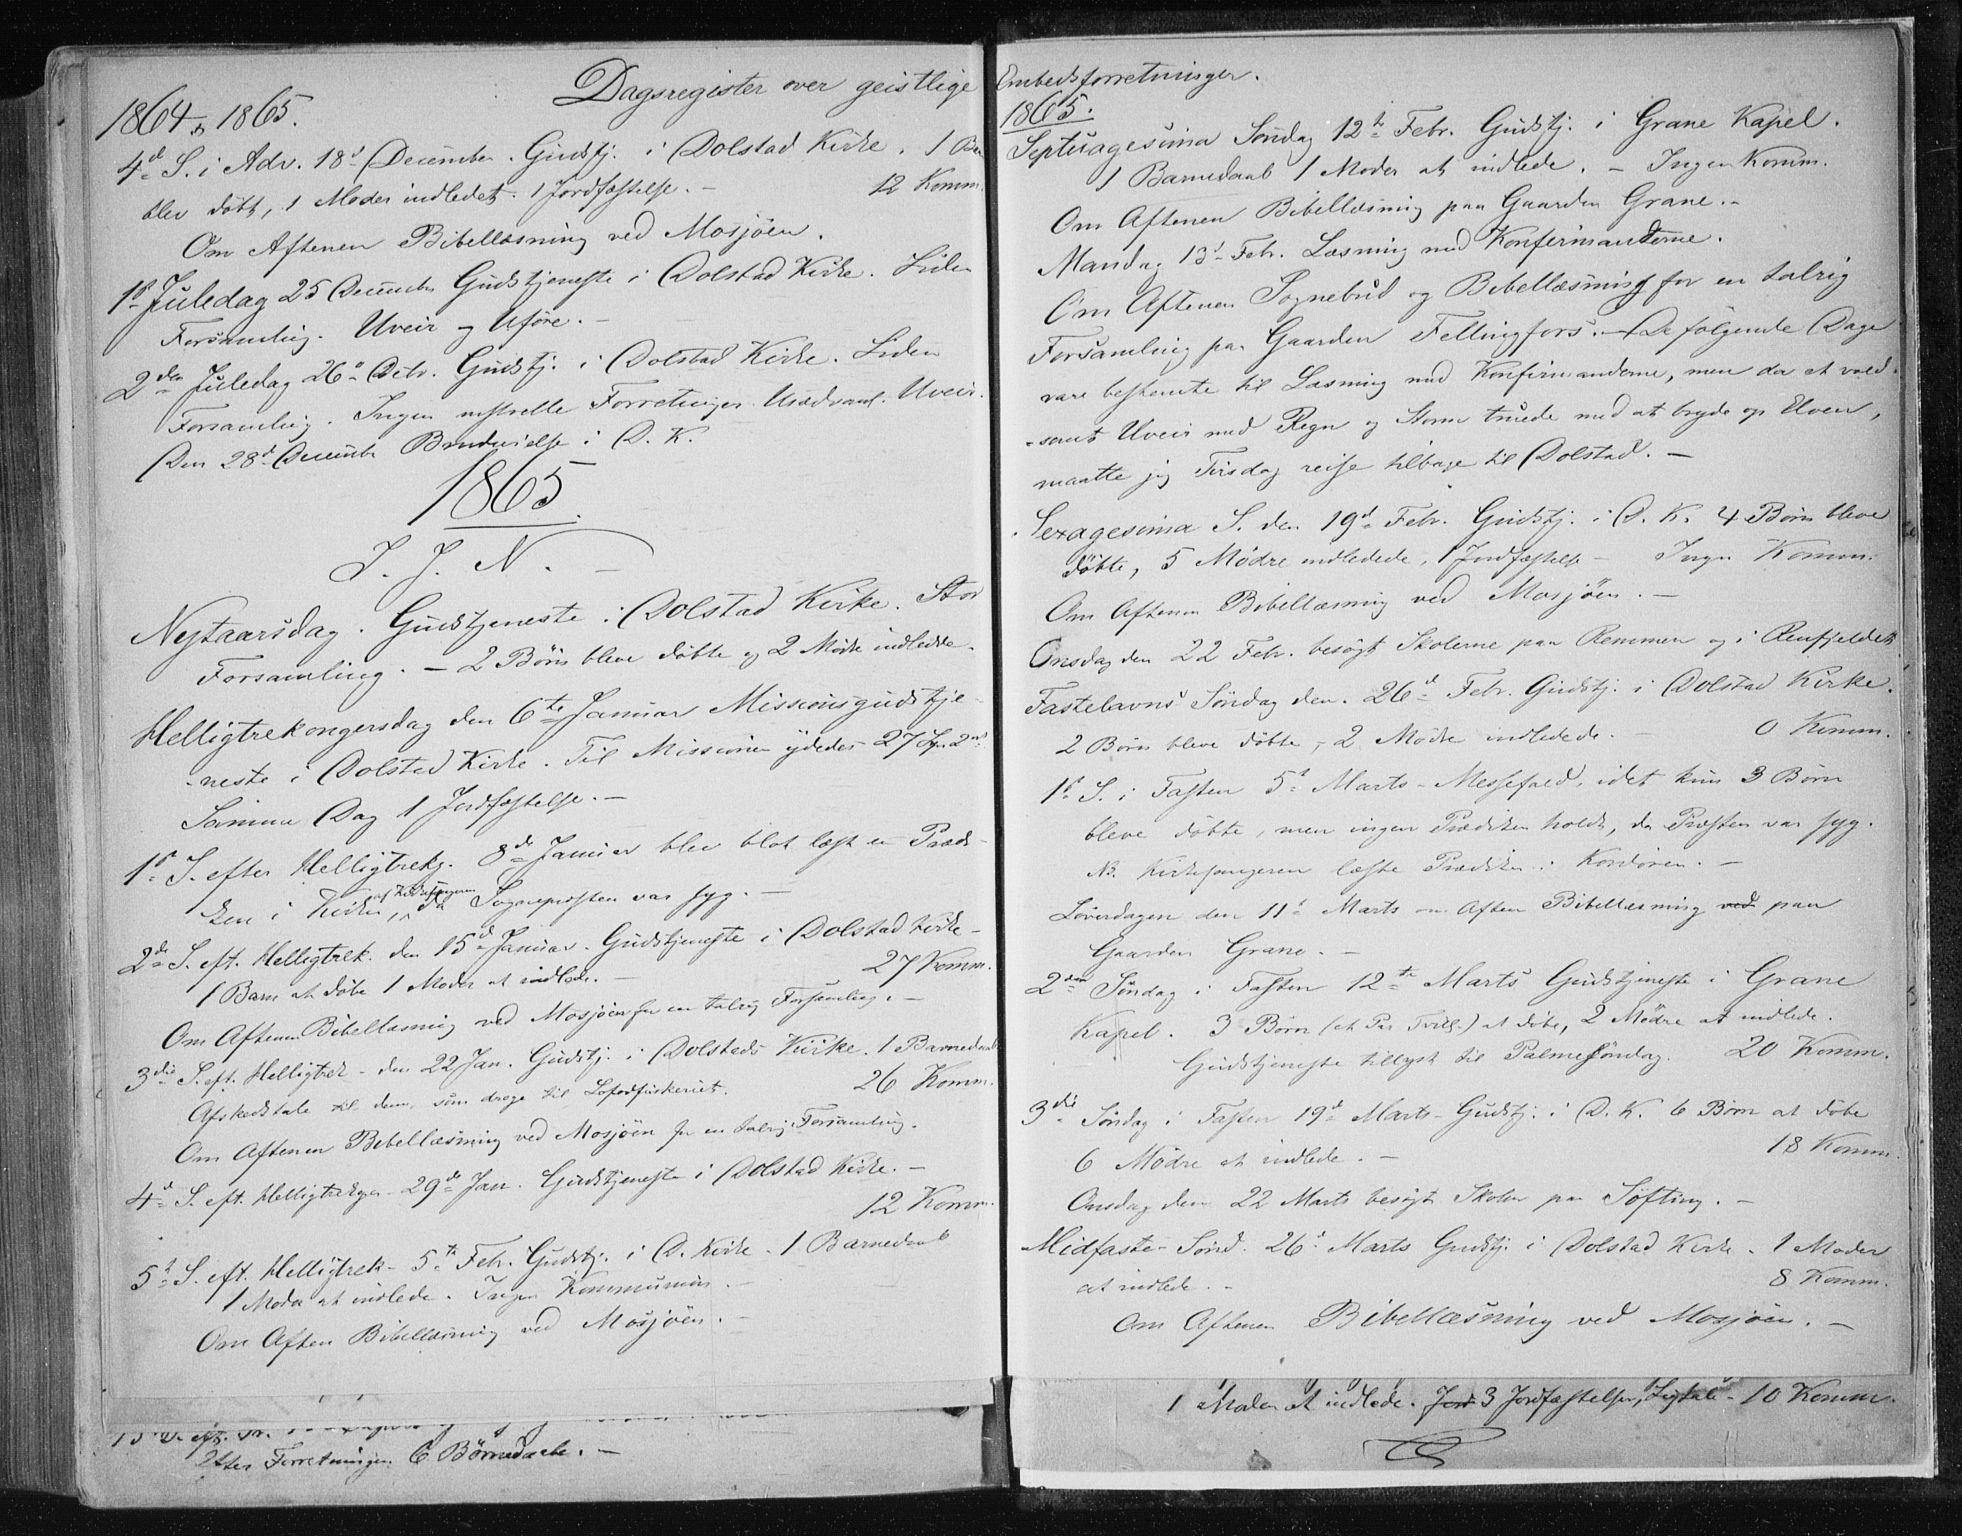 Dagsregister over geistlige Embedsforretninger.
1864 & 1865.
4d S. i Adv. 18d December. Gudstj. i Dolstad Kirke. 1 Barn
blev døbt, 1 Moder indledet. 1 Jordfæstelse. — 12 Komm.
Om Aftenen Bibellæsning ved Mosjøen.
1st Juledag 25 December Gudstjeneste i Dolstad Kirke. Liden
Forsamling. Uveir og Uføre. —
2den Juledag 26d Decbr. Gudstj. i Dolstad Kirke. Liden
Forsamling. Ingen Forretninger. Usædvanl. Uveir.
Den 28d December Brudevielse i D. K.
1865.
I. J. N. —
Nytaarsdag. Gudstjeneste i Dolstad Kirke. Stor
Forsamling. — 2 Børn bleve døbte og 2 Mødre indledede.
Helligtrekongersdag den 6te Januar Missionsgudstje-
-neste i Dolstad Kirke. Til Missionen ydedes 27
Samme Dag 1 Jordfæstelse. —
1st S. efter Helligtrekg. 8de Januar blev blot læst en Prædi-
ken i Kirken af Kirkesangeren, da Sognepresten var syg. —
2den S. eft. Helligtrek. den 15d Januar. Gudstjeneste i Dolstad Kirke —
1 Barn at døbe 1 Moder at indlede. — 27 Komm.
Om Aftenen Bibellæsning ved Mosjøen for en talrig Forsamling. —
3die S. eft. Helligtrek — den 22 Jan. Gudstj. i Dolstads Kirke. 1 Barnedaab
Afskedstale til dem, som droge til Lofodfiskeriet. 26 Komm.
Om Aftenen Bibellæsning ved Mosjøen for en talrig Forsamling.
4d S. eft. Helligtrekgr — 29de Jan. Gudstjeneste i Dolstad Kirke. —
12 Komm.
5t S. eft. Helligtrek — 5te Febr. Gudstj. i D. Kirke. 1 Barnedaab
1 Moder at indlede. Ingen Kommunion. —
Om Aften Bibellæsning ved Mosjøen. —
efter Forretningen 6 Børnedaabe. —
1865.
Septuagesima Søndag 12te Febr. Gudstj. i Grane Kapel.
1 Barnedaab 1 Moder at indlede. — Ingen Komm.
Om Aftenen Bibellæsning paa Gaarden Grane. —
Mandag 13d Febr. Læsning med Konfirmanterne.
Om Aftenen Sognebud og Bibellæsning for en talrig
Forsamling paa Gaarden Fellingfors. — De følgende Dage
vare bestemte til Læsning med Konfirmanderne, men da et vold-
-somt Uveir med Regn og Storm truede med at bryde op Elven,
maatte jeg Tirsdag reise tilbage til Dolstad. —
Sexagesima S. den 19d Febr. Gudstj. i D. K. 4 Børn bleve
døbte, 5 Mødre indledede, 1 Jordfæstelse — Ingen Komm.
Om Aftenen Bibellæsning ved Mosjøen. —
Onsdag den 22 Febr. besøgt Skolerne paa Remmen og i Renfjeldet
Fastelavns Søndag den 26d Febr. Gudstj. i Dolstad Kirke.
2 Børn bleve døbte, 2 Mødre indledede. — 0 Komm.
1st S. i Fasten 5t Marts — Messefald, idet kun 3 Børn
bleve døbte, men ingen Prædiken holdt, da Præsten var syg.
NB. Kirkesangeren læste Prædiken i Kordøren. —
Løverdagen den 11t Marts om Aften Bibellæsning ved paa
Gaarden Grane. —
2den Søndag i Fasten 12te Marts Gudstjeneste i Grane
Kapel. 3 Børn (et Par Tvill.) at døbe, 2 Mødre at indlede.
Gudstjeneste tillyst til Palmesøndag. 20 Komm.
3die Søndag i Fasten 19d Marts — Gudstj. i D. K. 6 Børn at døbe
6 Mødre at indlede. — 18 Komm.
Onsdag den 22 Marts besøgt Skolen paa Søfting. —
Midfaste-Sønd. 26d Marts Gudstj. i Dolstad Kirke. 1 Moder
at indlede. — 8 Komm.
Om Aftenen Bibellæsning ved Mosjøen. —
1 Moder at indlede. Jord 3 Jordfæstelser, Ligtale — 10 Komm.